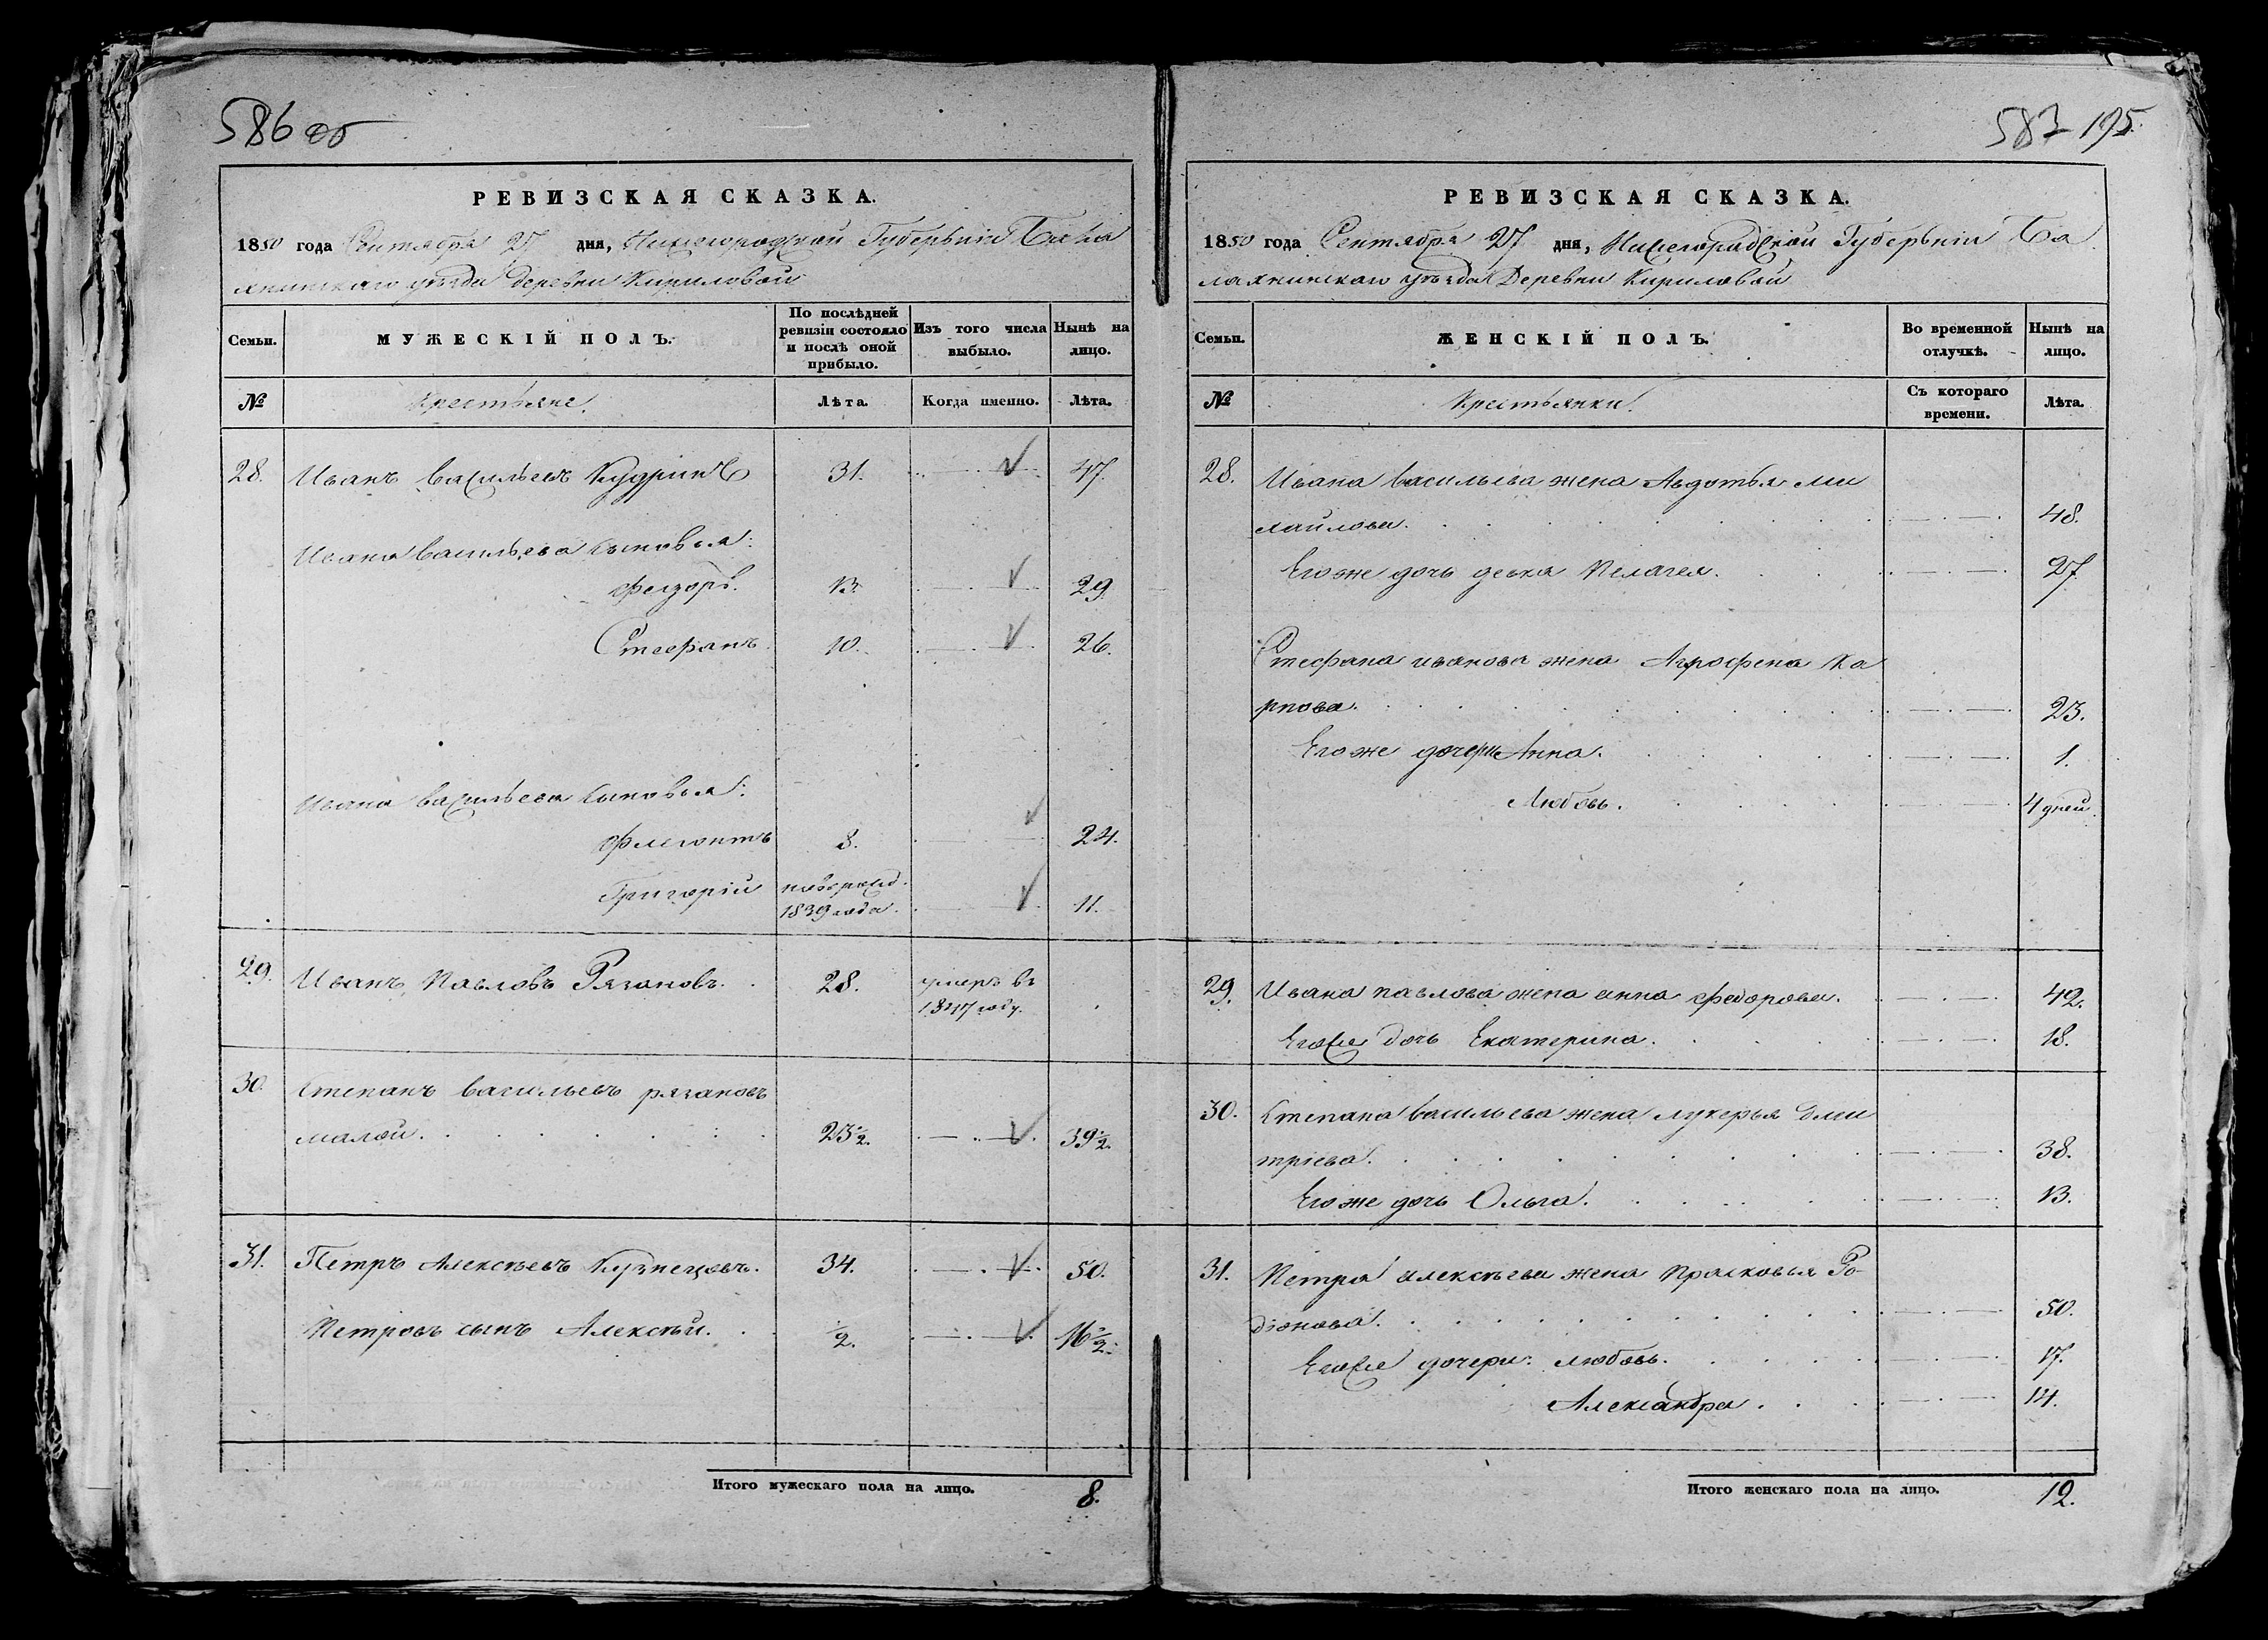 586 об
РЕВИЗСКАЯ СКАЗКА.
1850 года Сентября 27 дня, Нижегородской Губернiи Бала
хнинскаго уѣзда Деревни Кириловой
Семьи.
МУЖЕСКIЙ ПОЛЪ.
По послѣдней
ревизiи состояло
и послѣ оной
прибыло.
Изъ того числа
выбыло.
Нынѣ на
лицо.
№
Крестьяне.
Лѣта.
Когда именно.
Лѣта.
28. Иванъ Васильевъ Кудринъ 31. 47.
Ивана Васильева сыновья:
Федоръ. 13. 29.
Стефанъ 10. 26.
Ивана Васильева сыновья:
Флегонтъ 8. 24.
Григорiй новорожд. 11.
1839 года.
29. Иванъ Павловъ Рязановъ. 28. умеръ въ
1847 году.
30. Степанъ Васильевъ рязановъ
малой. 23 1/2. 39 1/2.
31. Петръ Алексѣевъ Кузнецовъ. 34. 50.
Петровъ сынъ Алексѣй. 1/2. 16 1/2.
Итого мужескаго пола на лицо. 8.
587 195.
РЕВИЗСКАЯ СКАЗКА.
1850 года Сентября 27 дня, Нижегородской Губернiи Ба
лахнинскаго уѣзда Деревни Кириловой
Семьи.
ЖЕНСКIЙ ПОЛЪ.
Во временной
отлучкѣ.
Нынѣ на
лицо.
№
Крестьянки.
Съ котораго
времени.
Лѣта.
28. Ивана Васильева жена Авдотья Ми
хайлова. 48.
Его же дочь девка Пелагея. 27.
Стефана иванова жена Агрофена Ка
рпова. 23.
Его же дочери Анна. 1.
Любовь. 4 дней.
29. Ивана павлова жена анна федорова. 42.
Егоже дочь Екатерина. 18.
30. Степана Васильева жена лукерья Дми
трiева. 38.
Его же дочь Ольга. 13.
31. Петра алексѣева жена Прасковья Ро-
дiонова. 50.
Егоже дочери: любовь. 17.
Александра. 14.
Итого женскаго пола на лицо. 12.